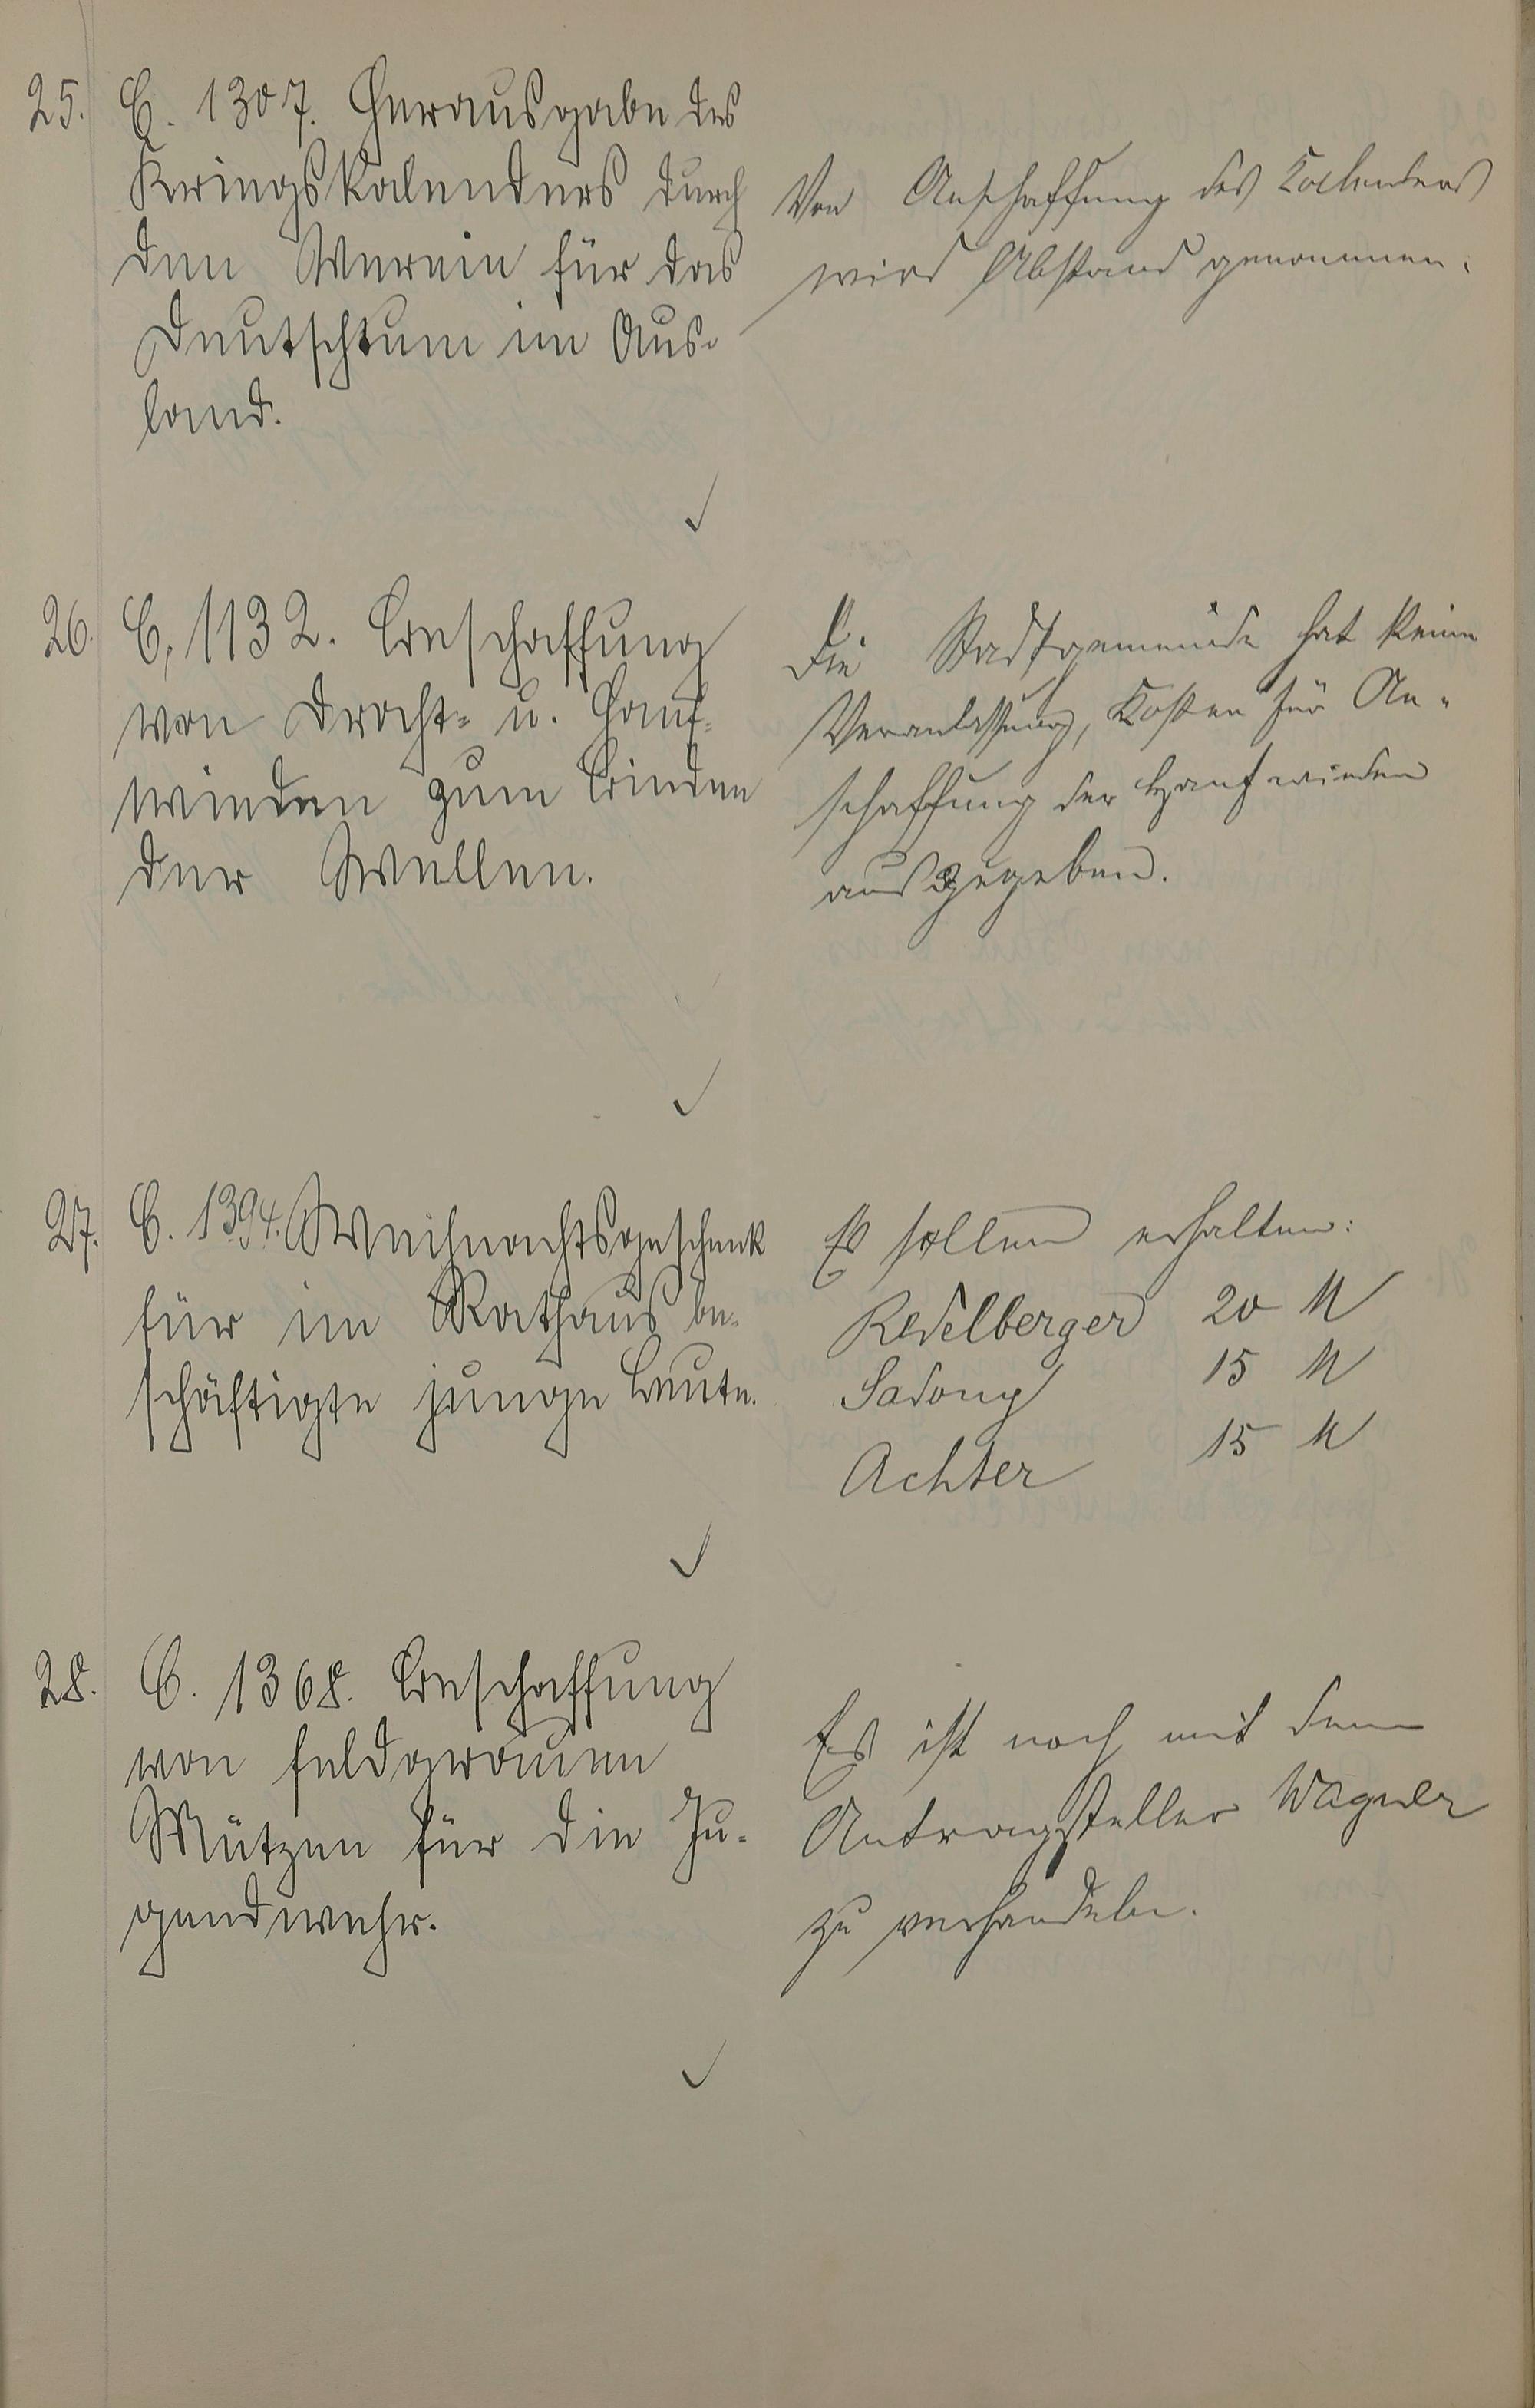 25. C. 1307. Herausgabe des
Kriegskalenders durch
den Verein für das
Deutschtum im Aus-
land.
Von Anschaffung des Kalenders
wird Abstand genommen.
26. C. 1132. Beschaffung
von Dracht- u. Hanf-
winden zum Binden
der Wellen.
Die Stadtgemeinde hat keine
Veranlassung, Kosten für An-
schaffung der Hanfwieden
auszugeben.
27. C. 1394. Weihnachtsgeschenk
für im Rathaus be-
schäftigte junge Leute.
Es sollen erhalten:
Redelberger 20 M
Sadony 15 M
Achter 15 M
28. C. 1368. Beschaffung
von feldgrauen
Mützen für die Ju-
gendwehr.
Es ist noch mit dem
Antragsteller Wagner
zu verhandeln.